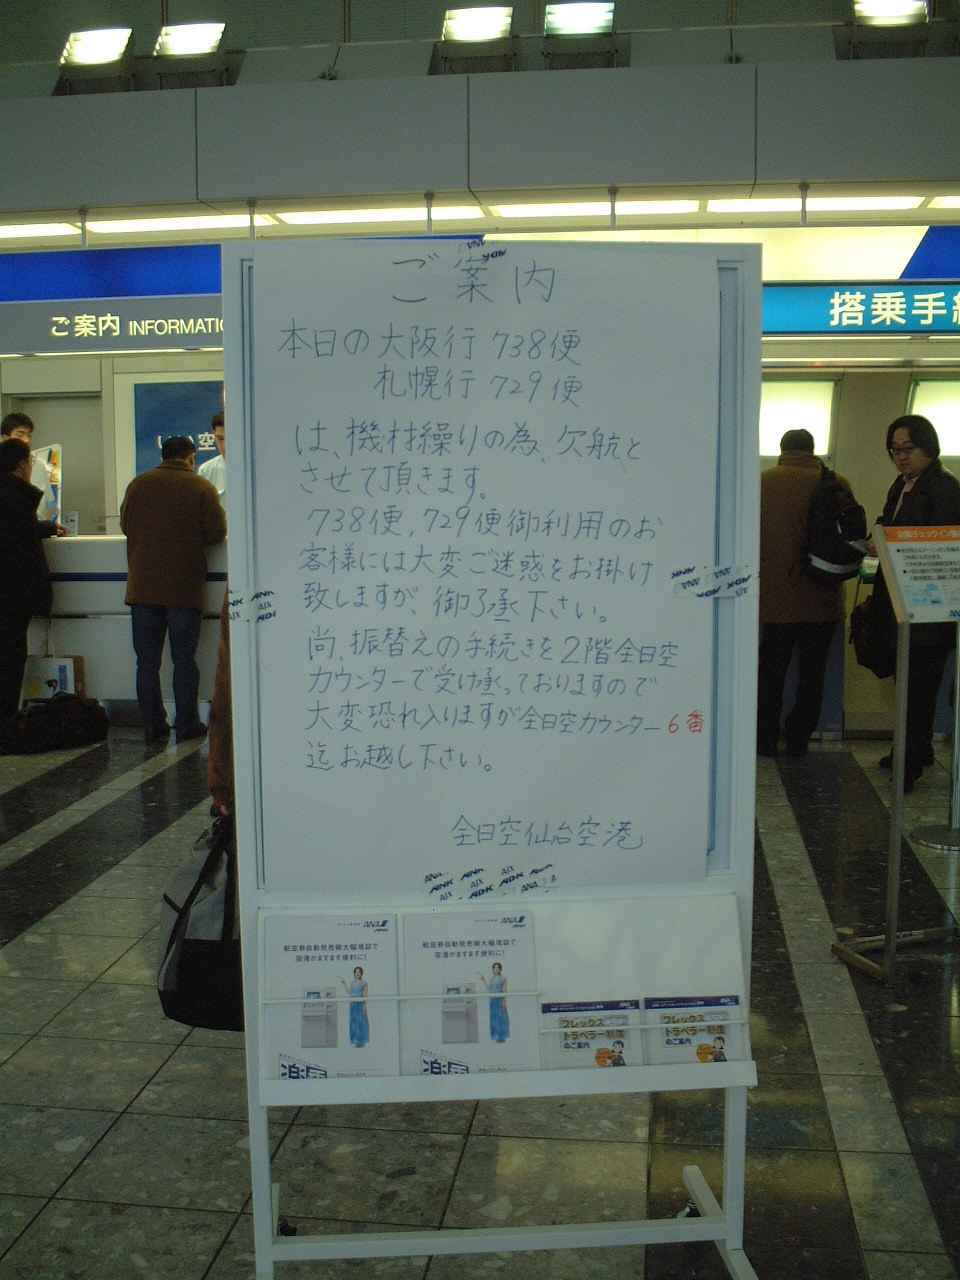 ご案内 INFORMATIO
搭乗手続
ご案内
本日の大阪行 738便
札幌行 729便
は、機材繰りの為、欠航と
させて頂きます。
738便, 729便御利用のお
客様には大変ご迷惑をお掛け
致しますが、御了承下さい。
尚、振替えの手続きを2階全日空
カウンターで受け承っておりますので
大変恐れ入りますが全日空カウンター6番
迄お越し下さい。
全日空仙台空港
ANA
ANK
AJX
ANA
航空券自動発売機大幅増設で
空港がますます便利に!
ANA
航空券自動発売機大幅増設で
空港がますます便利に!
フレックス
トラベラー制度
のご案内
フレックス
トラベラー制度
のご案内